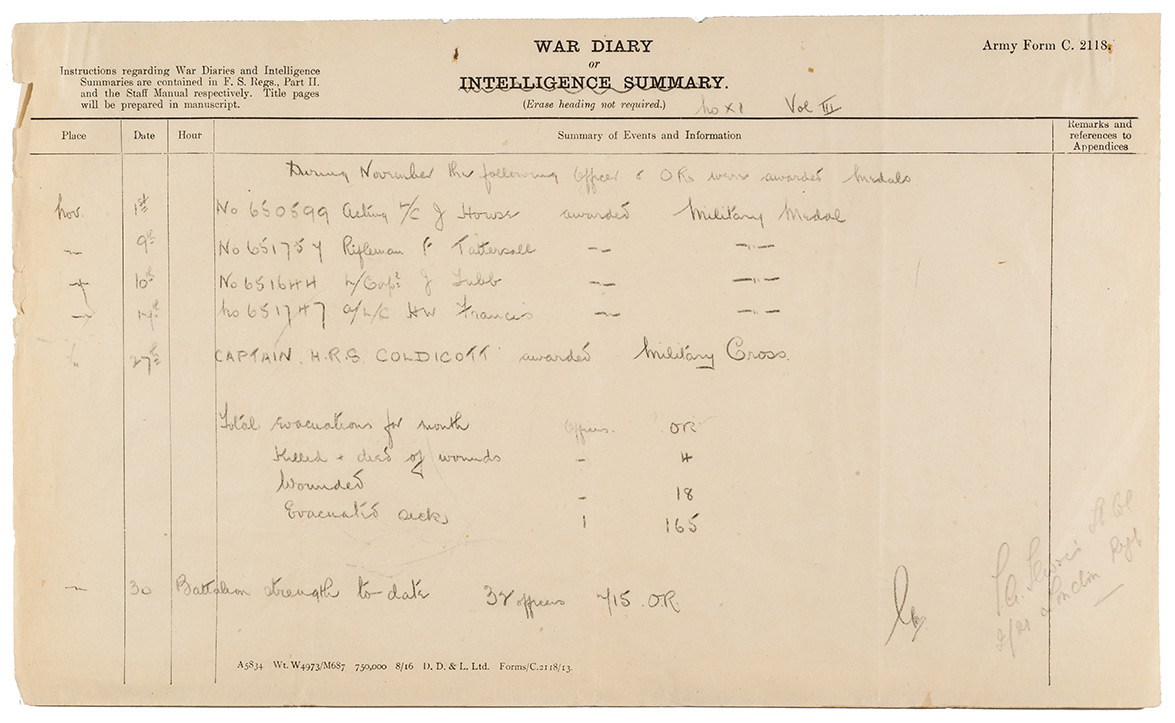 WAR DIARY
or
INTELLIGENCE SUMMARY.
(Erase heading not required.)
Army Form C. 2118.
Instructions regarding War Diaries and Intelligence
Summaries are contained in F. S. Regs., Part II.
and the Staff Manual respectively. Title pages
will be prepared in manuscript.
No XI Vol III
Place Date Hour Summary of Events and Information Remarks and references to Appendices
During November the following Officer & ORs were awarded Medals
Nov. 1st No 650599 Acting L/C J Howse awarded Military Medal
— 9th No 651754 Rifleman F Tattersall — —"—
10th No 651644 L/Corpl J Tubb — —"—
No 651747 a/L/C HW Francis — —"—
" 27th CAPTAIN. H.R.S. COLDICOTT awarded Military Cross.
Total evacuations for month Officers. OR
Killed & died of wounds - 4
Wounded - 18
Evacuated sick 1 165
— 30 Battalion strength to date officers 715 O.R.
Lt Col
2/21 London Regt
A5834 Wt. W4973/M687 750,000 8/16 D. D. & L. Ltd. Forms/C.2118/13.